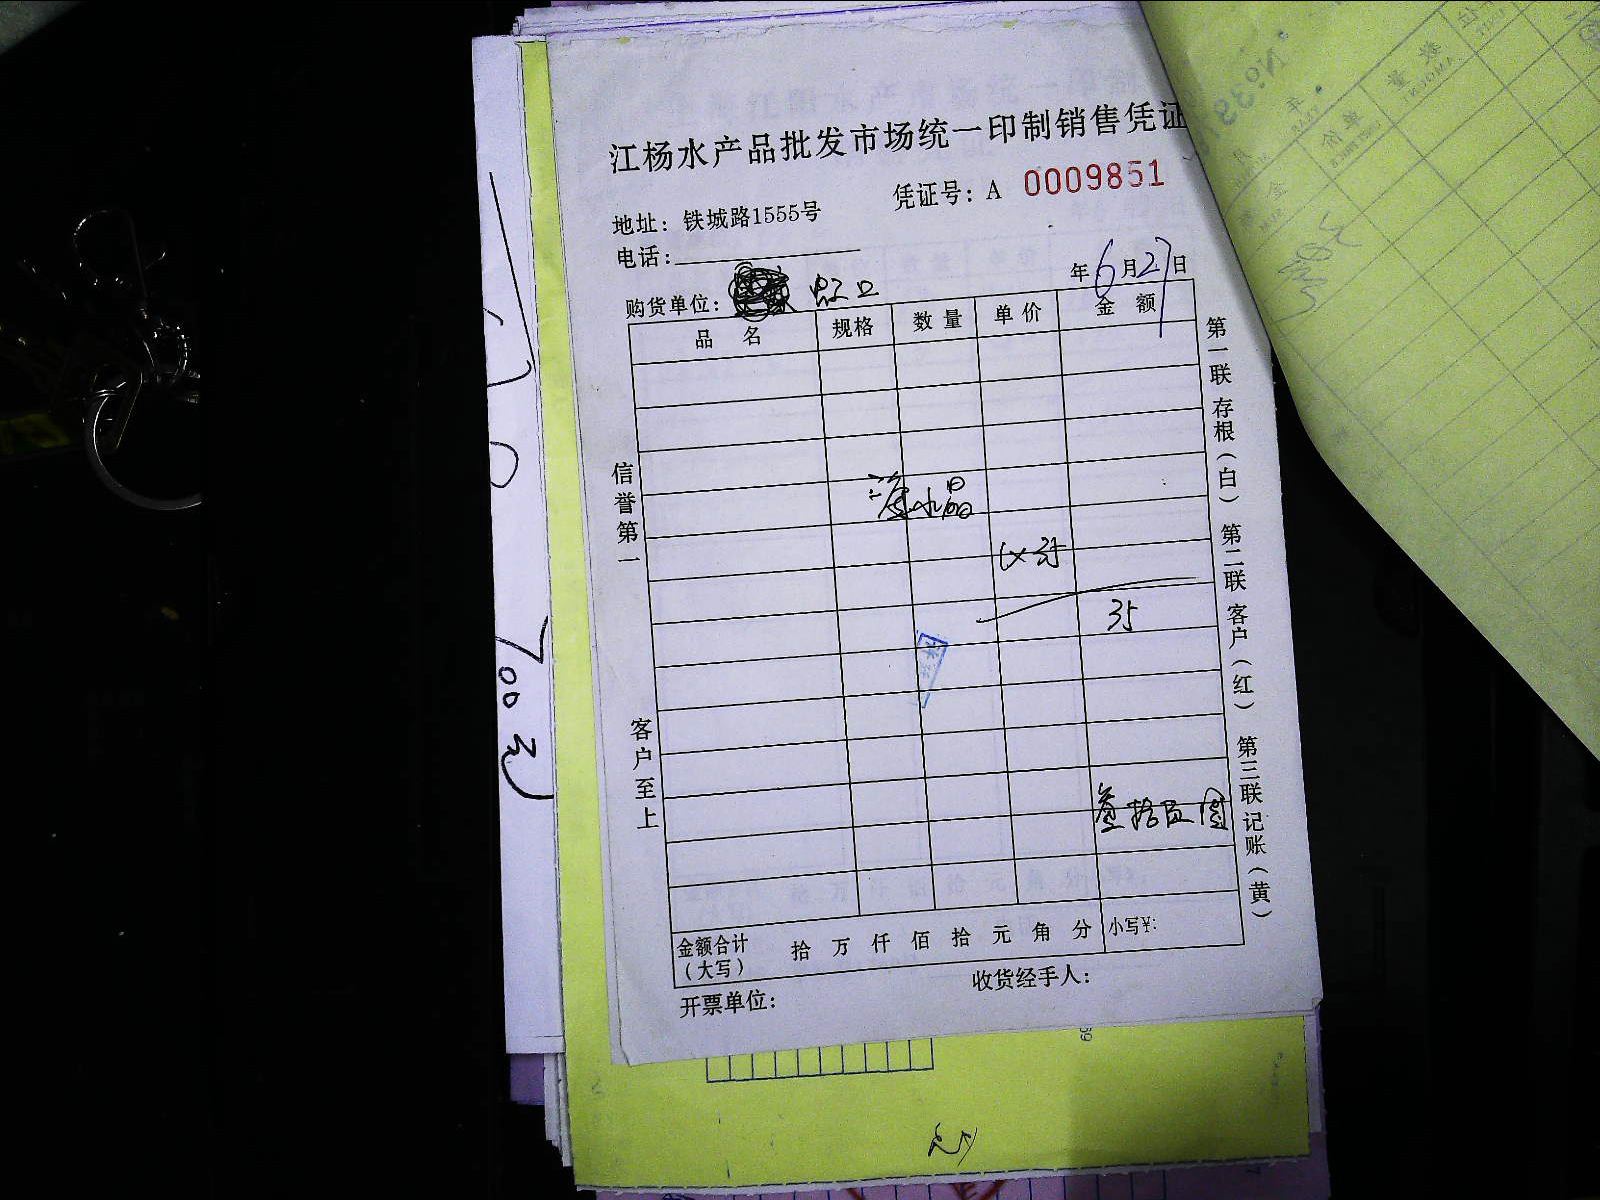 江杨水产品批发市场统一印制销售凭证
凭证号: A 0009851
地址: 铁城路1555号
电话:
年6月27日
购货单位: 虹口
品名 规格 数量 单价 金额
水晶
35
叁拾伍圆
金额合计(大写) 拾 万 仟 佰 拾 元 角 分 小写¥:
开票单位: 收货经手人:
信誉第一
客户至上
第一联存根(白) 第二联客户(红) 第三联记账(黄)
700元